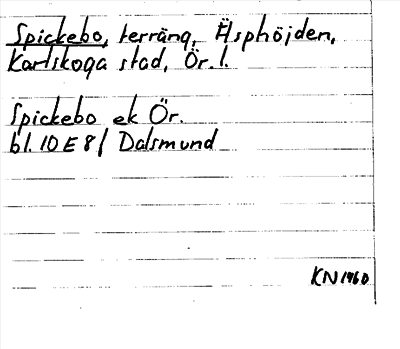 Spickebo, terräng, Äsphöjden,
Karlskoga stad, Ör. l.
Spickebo ek Ör.
bl. 10 E 8f Dalsmund
KN 1960